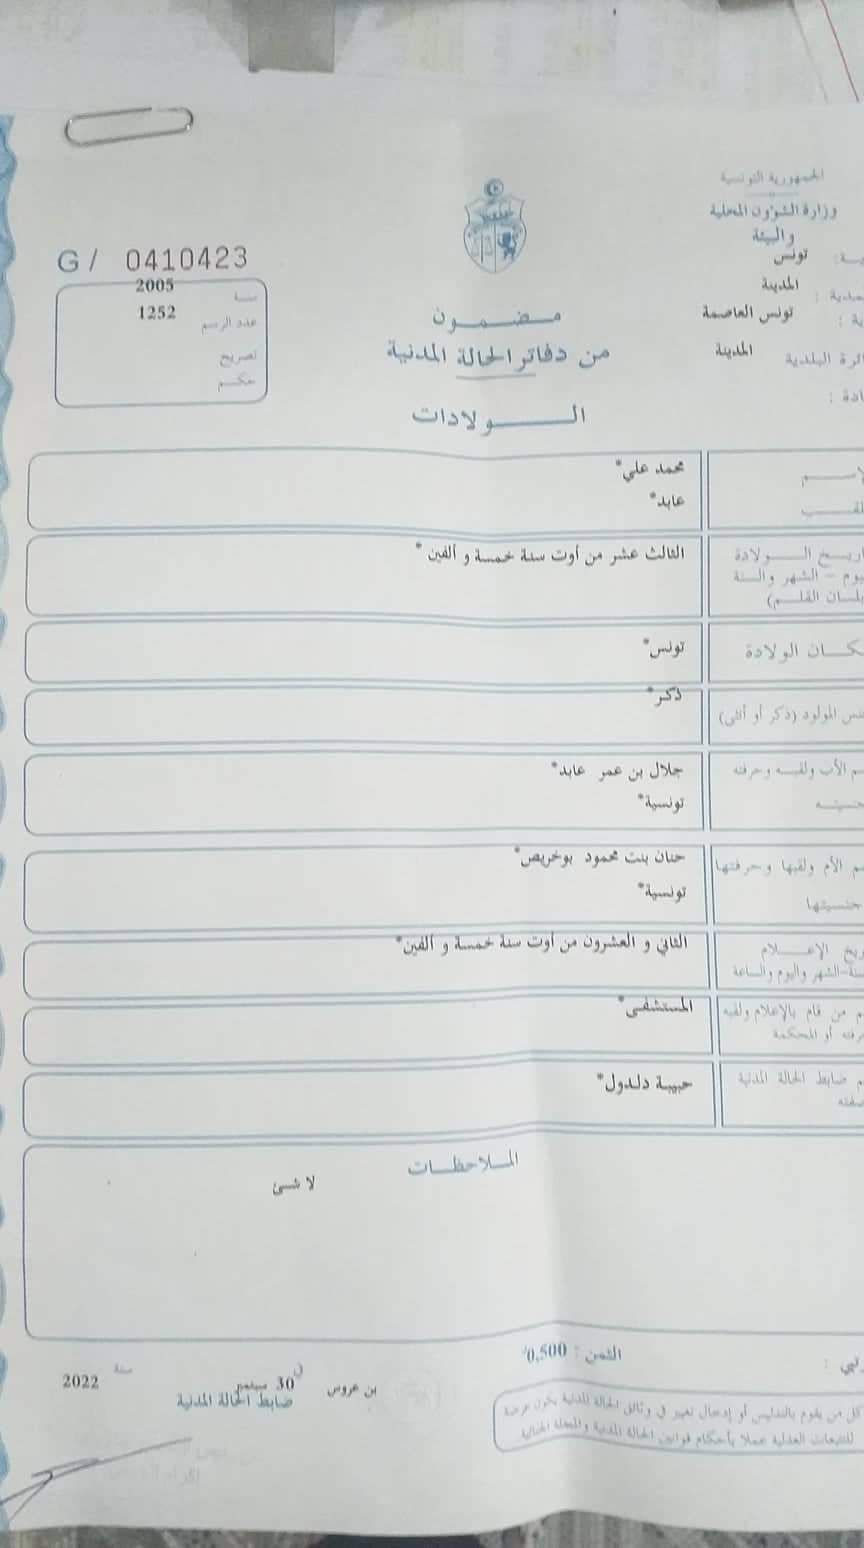 الجمهورية التونسية
وزارة الشؤون المحلية
والبيئة
تونس
المدينة
تونس العاصمة
المدينة
G / 0410423
سنة 2005
عدد الرسم 1252
تصريح
حكم
مضمون
من دفاتر الحالة المدنية
الولادات
محمد علي*
عابد*
الولادة الثالث عشر من أوت سنة خمسة و ألفين *
الشهر والسنة
القلم)
الولادة تونس*
المولود (ذكر أو أنثى) ذكر*
الأب ولقبه وحرفته جلال بن عمر عابد*
تونسية*
الأم ولقبها وحرفتها حنان بنت محمود بوخريص*
جنسيتها تونسية*
الإعلام الثاني و العشرون من أوت سنة خمسة و ألفين*
الشهر واليوم والساعة
من قام بالإعلام ولقبه المستشفى*
أو المحكمة
ضابط الحالة المدنية حبيبة دلدول*
الملاحظات
لا شئ
الثمن : 0,500
بن عروس في 30 سبتمبر سنة 2022
ضابط الحالة المدنية
كل من يقوم بالتدليس أو إدخال تغيير في وثائق الحالة المدنية يكون عرضة
للتتبعات العدلية عملا بأحكام قوانين الحالة المدنية والمجلة الجنائية